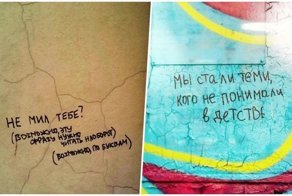 НЕ МИЛ ТЕБЕ?
(ВОЗМОЖНО, ЭТУ
ФРАЗУ НУЖНО
ЧИТАТЬ НАОБОРОТ)
(ВОЗМОЖНО, ПО БУКВАМ)
МЫ СТАЛИ ТЕМИ,
КОГО НЕ ПОНИМАЛИ
В ДЕТСТВЕ